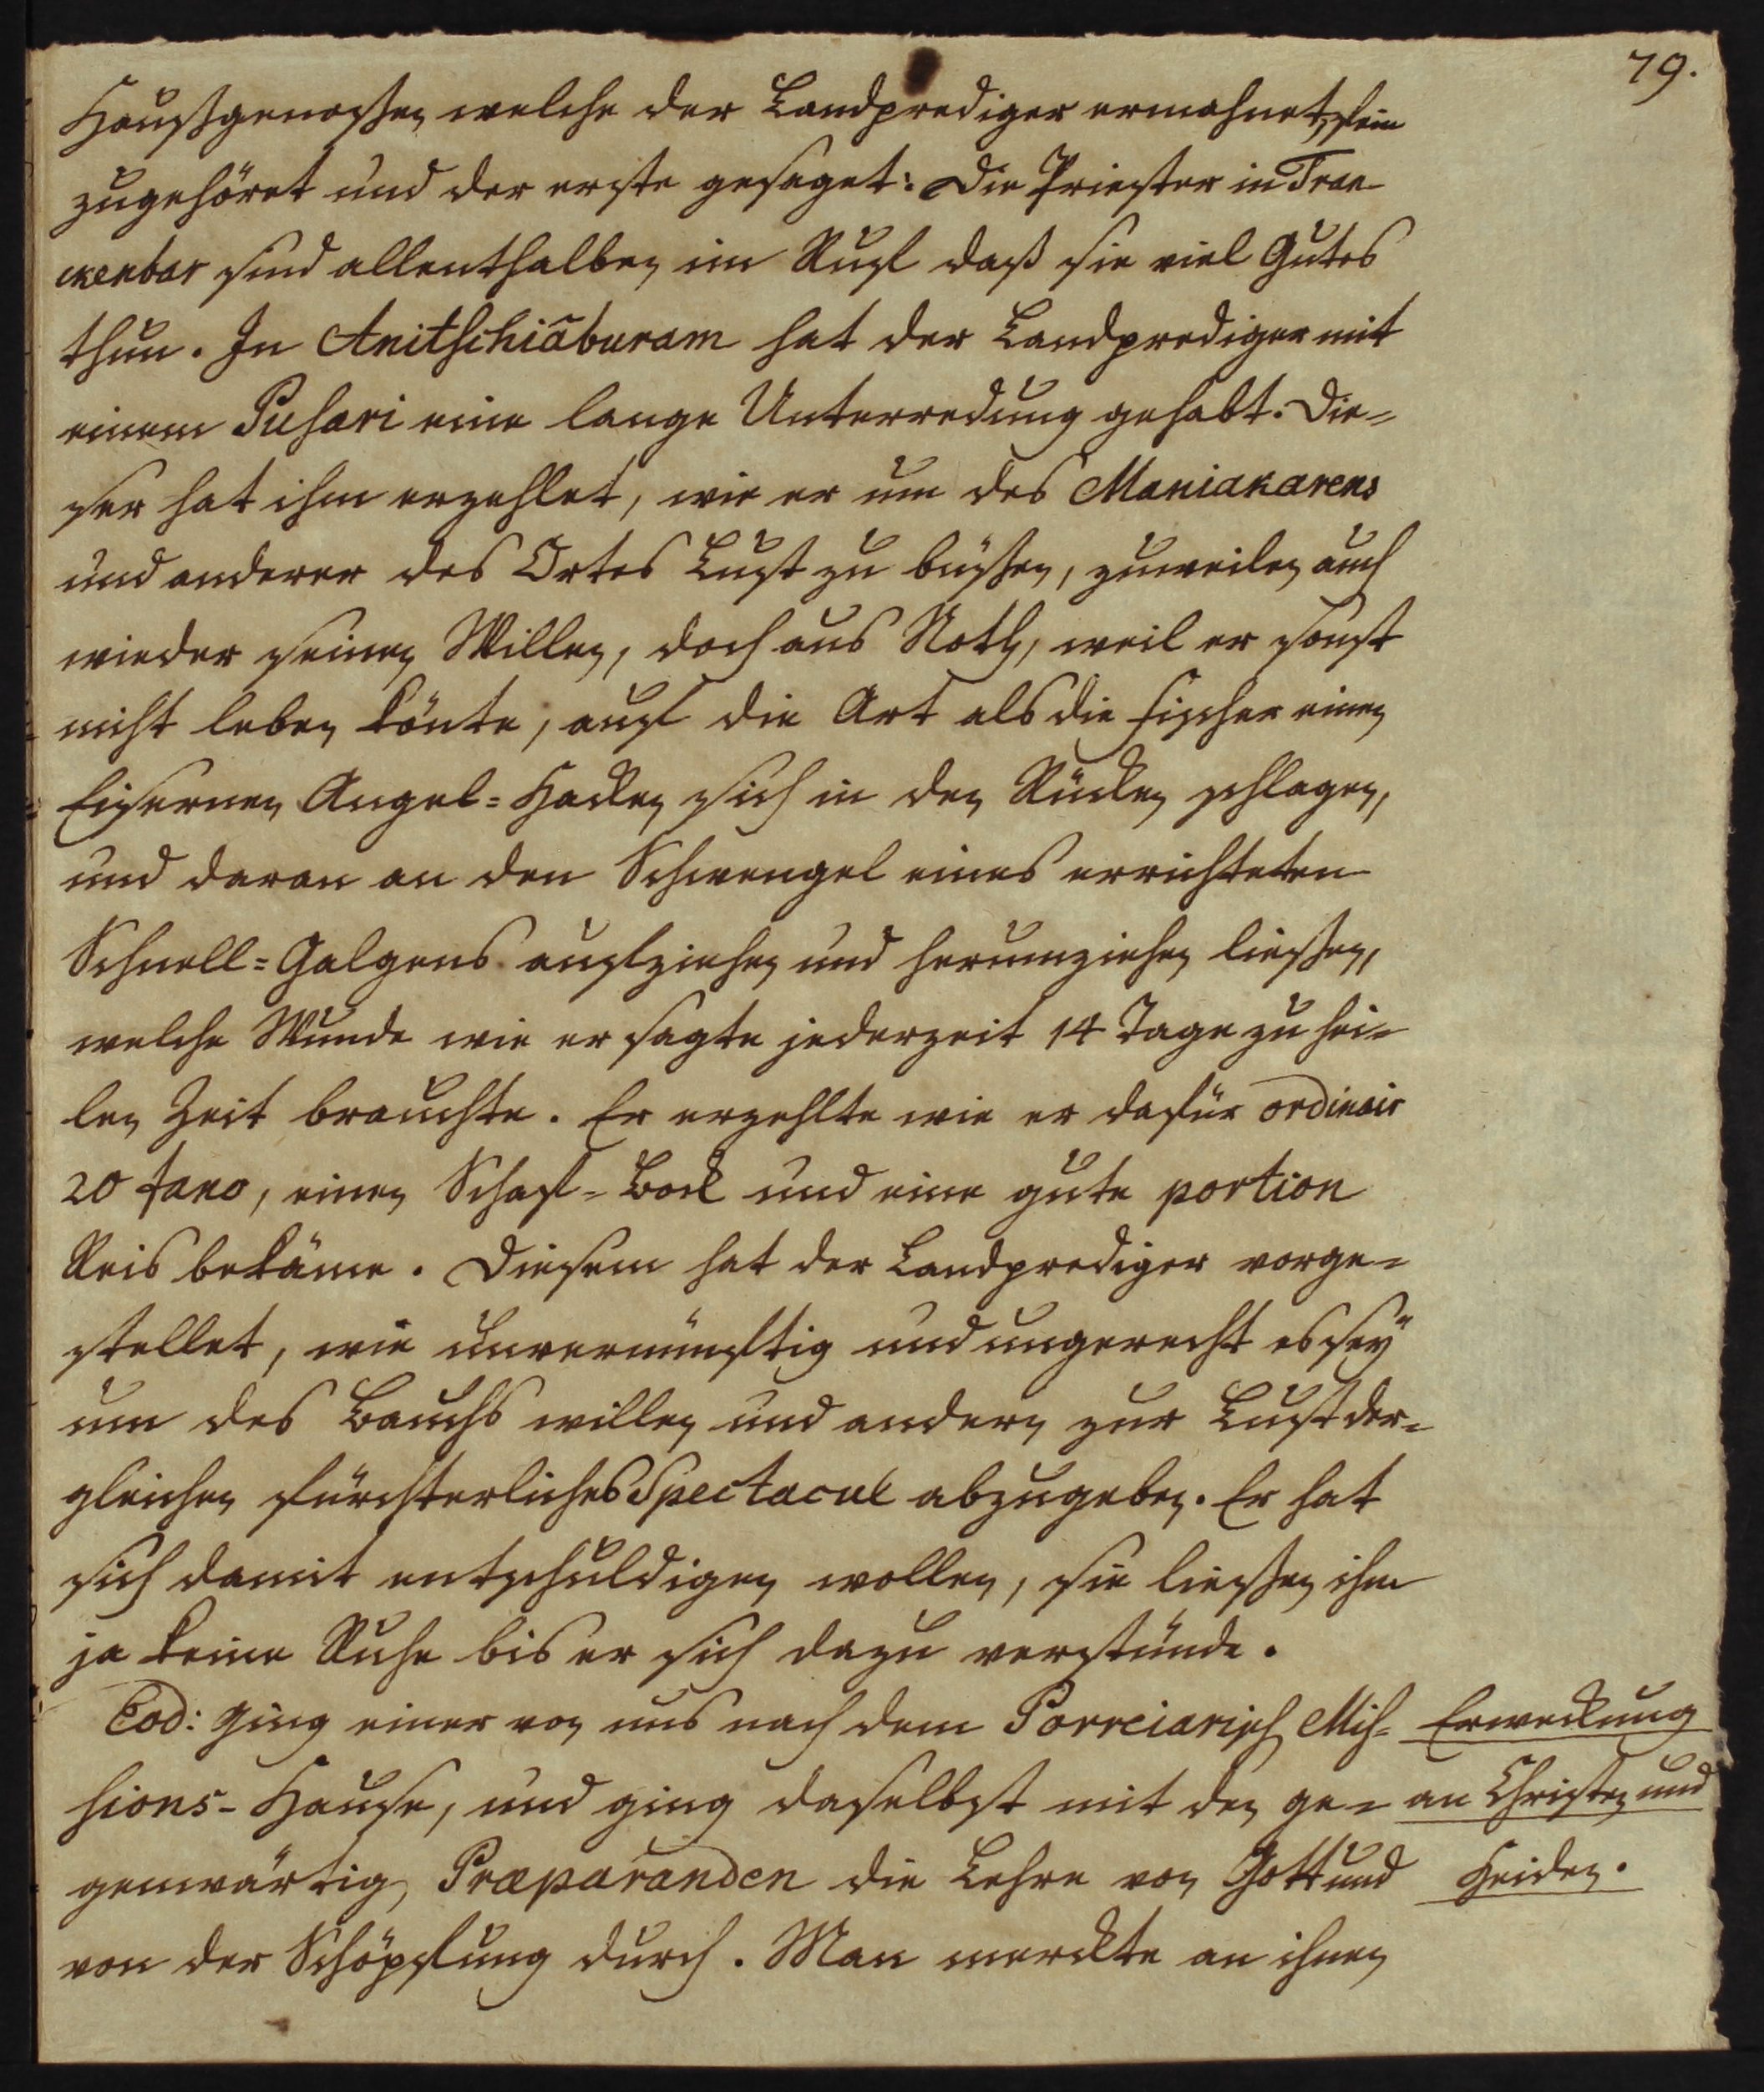 79.
Haußgenoßen welche der Landprediger ermahnet, fein
zugehöret und der erste gesaget: Die Priester in Tran-
ckenbar sind allenthalben im Ruf daß sie viel Gutes
thun. In Anitschiāburam hat der Landprediger mit
einem Pusari eine lange Unterredung gehabt. Die-
ser hat ihm erzehlet, wie er um des Maniakarens
und anderer des Ortes Lust zu büßen, zuweilen auch
wieder seinen Willen, doch aus Noth, weil er sonst
nicht leben könte, auf die Art als die Fischer einen
Eisernen Angel-Hacken sich in den Rücken schlagen,
und daran an den Schwengel eines errichteten
Schnell-Galgens aufziehen und herumziehen ließen,
welche Wunde wie er sagte jederzeit 14 Tage zu hei-
len Zeit brauchte. Er erzehlte wie er dafür ordinair
20 fano, einen Schaf-Bock und eine gute portion
Reis bekäme. Diesem hat der Landprediger vorge-
stellet, wie unvernünftig und ungerecht es seÿ
um des Bauchs willen und andern zur Lust der-
gleichen fürchterliches Spectacul abzugeben. Er hat
sich damit entschuldigen wollen, sie ließen ihm
ja keine Ruhe bis er sich dazu verstünde.
Eod: ging einer von uns nach dem Porreiarisch Mis-
sions-Hause, und ging daselbst mit den ge-
genwärtig Præparanden die Lehre von Gott und
von der Schöpfung durch. Man merckte an ihnen
Erweckung
an Christen und
Heiden.